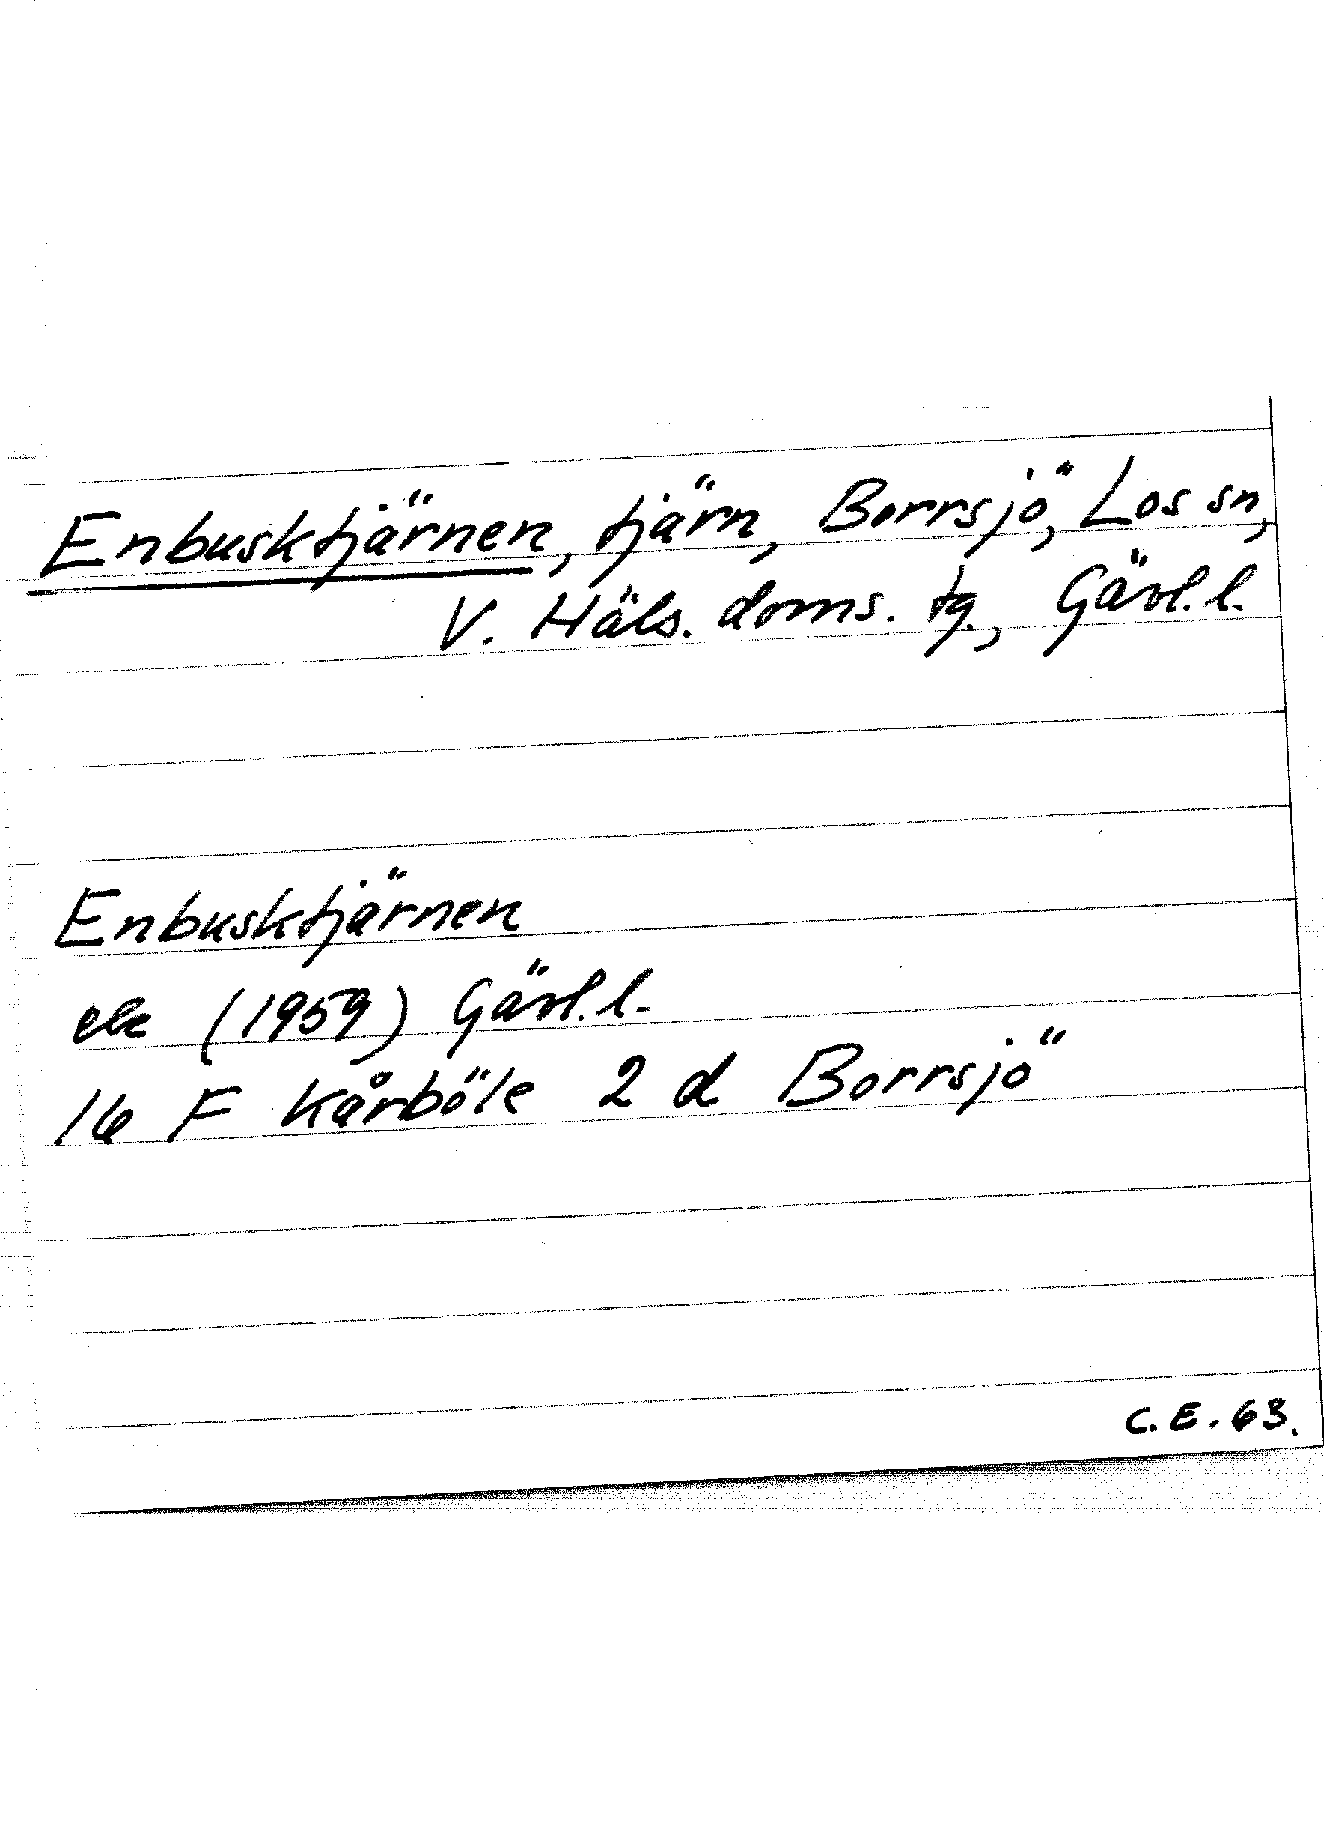 Enbusktjärnen, tjärn, Borrsjö, Los sn,
V. Häls. doms. tg., Gävl. l.
Enbusktjärnen
ek (1959) Gävl. l.
16 F Kårböle 2 d Borrsjö
C. E. 63.